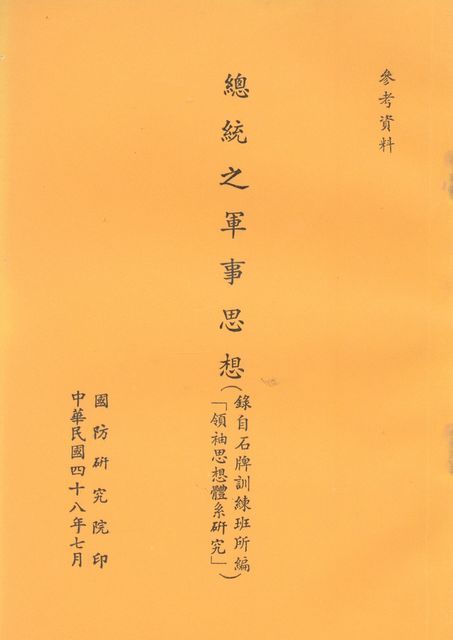 參考資料
總統之軍事思想
(錄自石牌訓練班所編
「領袖思想體系研究」)
國防研究院印
中華民國四十八年七月